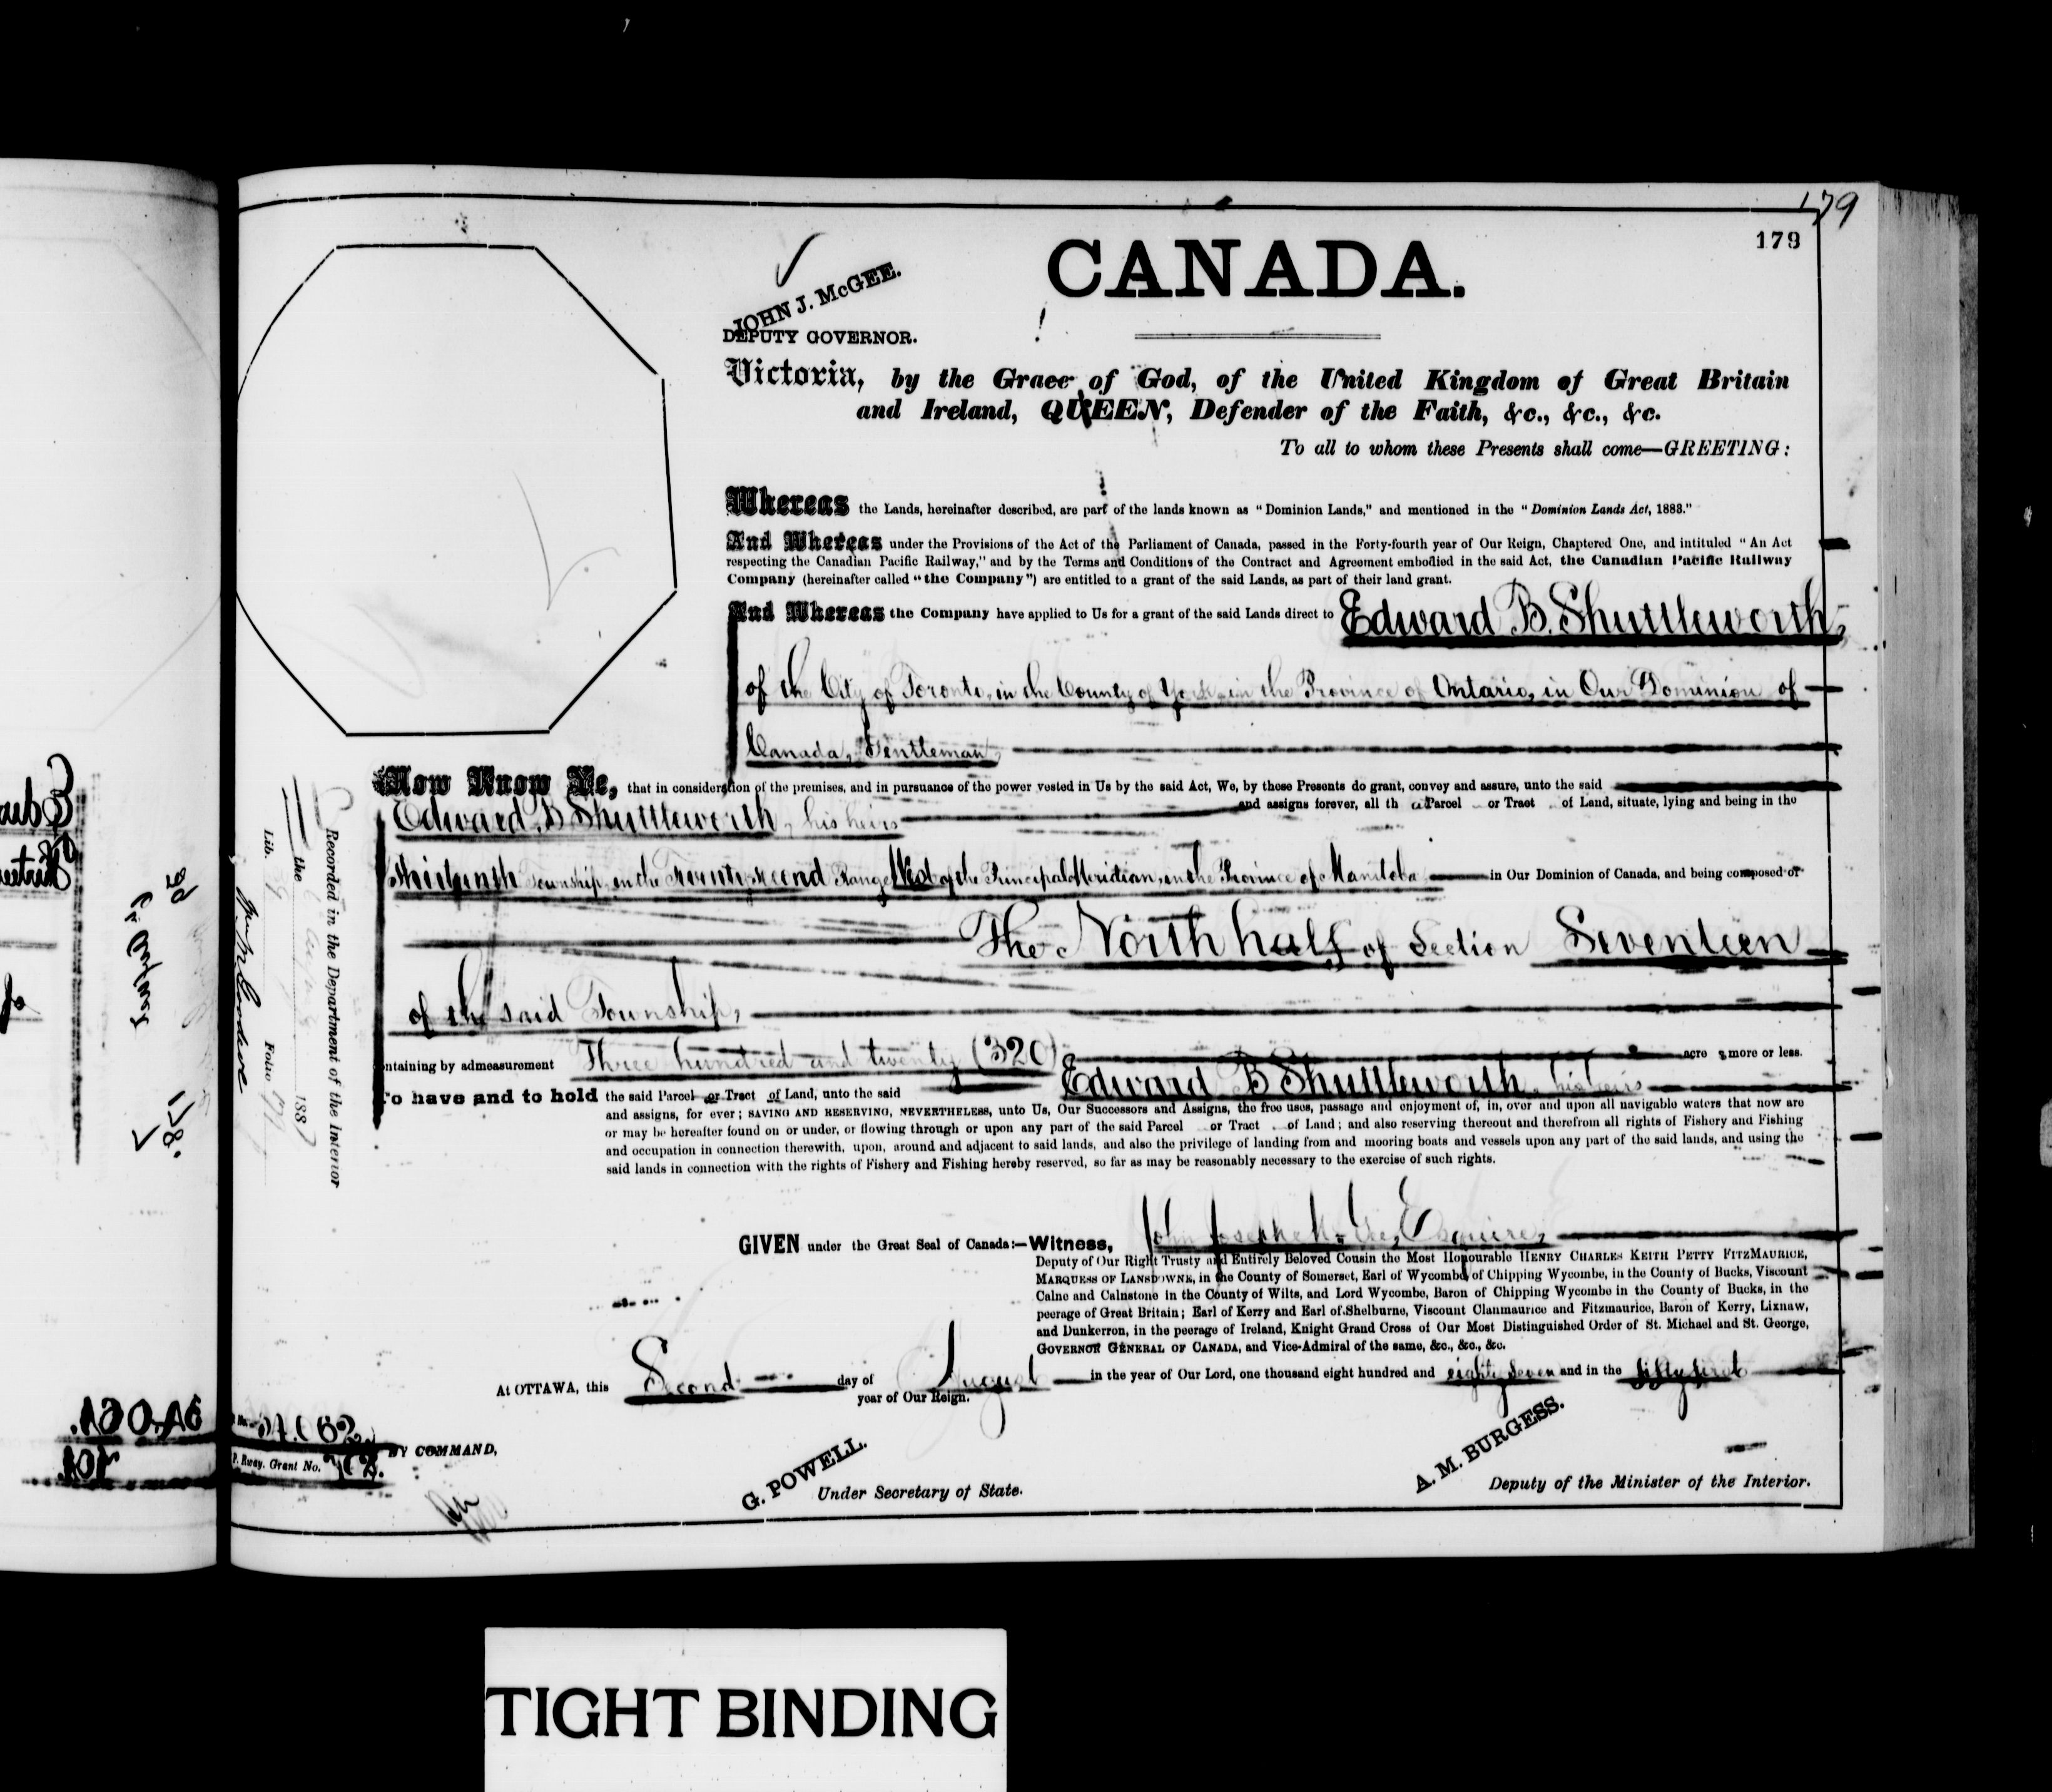 179
179
CANADA.
JOHN J. McGEE.
DEPUTY GOVERNOR.
Victoria, by the Grace of God, of the United Kingdom of Great Britain
and Ireland, QUEEN, Defender of the Faith, &c., &c., &c.
To all to whom these Presents shall come—GREETING:
Whereas the Lands, hereinafter described, are part of the lands known as "Dominion Lands," and mentioned in the "Dominion Lands Act, 1883."
And Whereas under the Provisions of the Act of the Parliament of Canada, passed in the Forty-fourth year of Our Reign, Chaptered One, and intituled "An Act
respecting the Canadian Pacific Railway," and by the Terms and Conditions of the Contract and Agreement embodied in the said Act, the Canadian Pacific Railway
Company (hereinafter called "the Company") are entitled to a grant of the said Lands, as part of their land grant.
And Whereas the Company have applied to Us for a grant of the said Lands direct to Edward B. Shuttleworth,
of the City of Toronto, in the County of York in the Province of Ontario, in Our Dominion of
Canada, Gentleman,
Now Know Ye, that in consideration of the premises, and in pursuance of the power vested in Us by the said Act, We, by these Presents do grant, convey and assure, unto the said
Edward B Shuttleworth, his heirs and assigns forever, all th a Parcel or Tract of Land, situate, lying and being in the
Thirteenth Township, in the Twenty-second Range West of the Principal Meridian, in the Province of Manitoba in Our Dominion of Canada, and being composed of
The North half of Section Seventeen
of the said Township,
ntaining by admeasurement Three hundred and twenty (320) acre s more or less.
To have and to hold the said Parcel or Tract of Land, unto the said Edward B Shuttleworth, his heirs
and assigns, for ever; SAVING AND RESERVING, NEVERTHELESS, unto Us, Our Successors and Assigns, the free uses, passage and enjoyment of, in, over and upon all navigable waters that now are
or may be hereafter found on or under, or flowing through or upon any part of the said Parcel or Tract of Land; and also reserving thereout and therefrom all rights of Fishery and Fishing
and occupation in connection therewith, upon, around and adjacent to said lands, and also the privilege of landing from and mooring boats and vessels upon any part of the said lands, and using the
said lands in connection with the rights of Fishery and Fishing hereby reserved, so far as may be reasonably necessary to the exercise of such rights.
GIVEN under the Great Seal of Canada:—Witness, John Joseph McGee, Esquire,
Deputy of Our Right Trusty and Entirely Beloved Cousin the Most Honourable HENRY CHARLES KEITH PETTY FITZMAURICE,
MARQUESS OF LANSDOWNE, in the County of Somerset, Earl of Wycombe, of Chipping Wycombe, in the County of Bucks, Viscount
Calne and Calnstone in the County of Wilts, and Lord Wycombe, Baron of Chipping Wycombe in the County of Bucks, in the
peerage of Great Britain; Earl of Kerry and Earl of Shelburne, Viscount Clanmaurice and Fitzmaurice, Baron of Kerry, Lixnaw,
and Dunkerron, in the peerage of Ireland, Knight Grand Cross of Our Most Distinguished Order of St. Michael and St. George,
GOVERNOR GENERAL OF CANADA, and Vice-Admiral of the same, &c., &c., &c.
At OTTAWA, this Second day of August in the year of Our Lord, one thousand eight hundred and eighty seven and in the fifty first
year of Our Reign.
BY COMMAND,
G. POWELL.
Under Secretary of State.
A. M. BURGESS.
Deputy of the Minister of the Interior.
Recorded in the Department of the Interior
the 1887
Lib. Folio
P. Rway. Grant No.
TIGHT BINDING